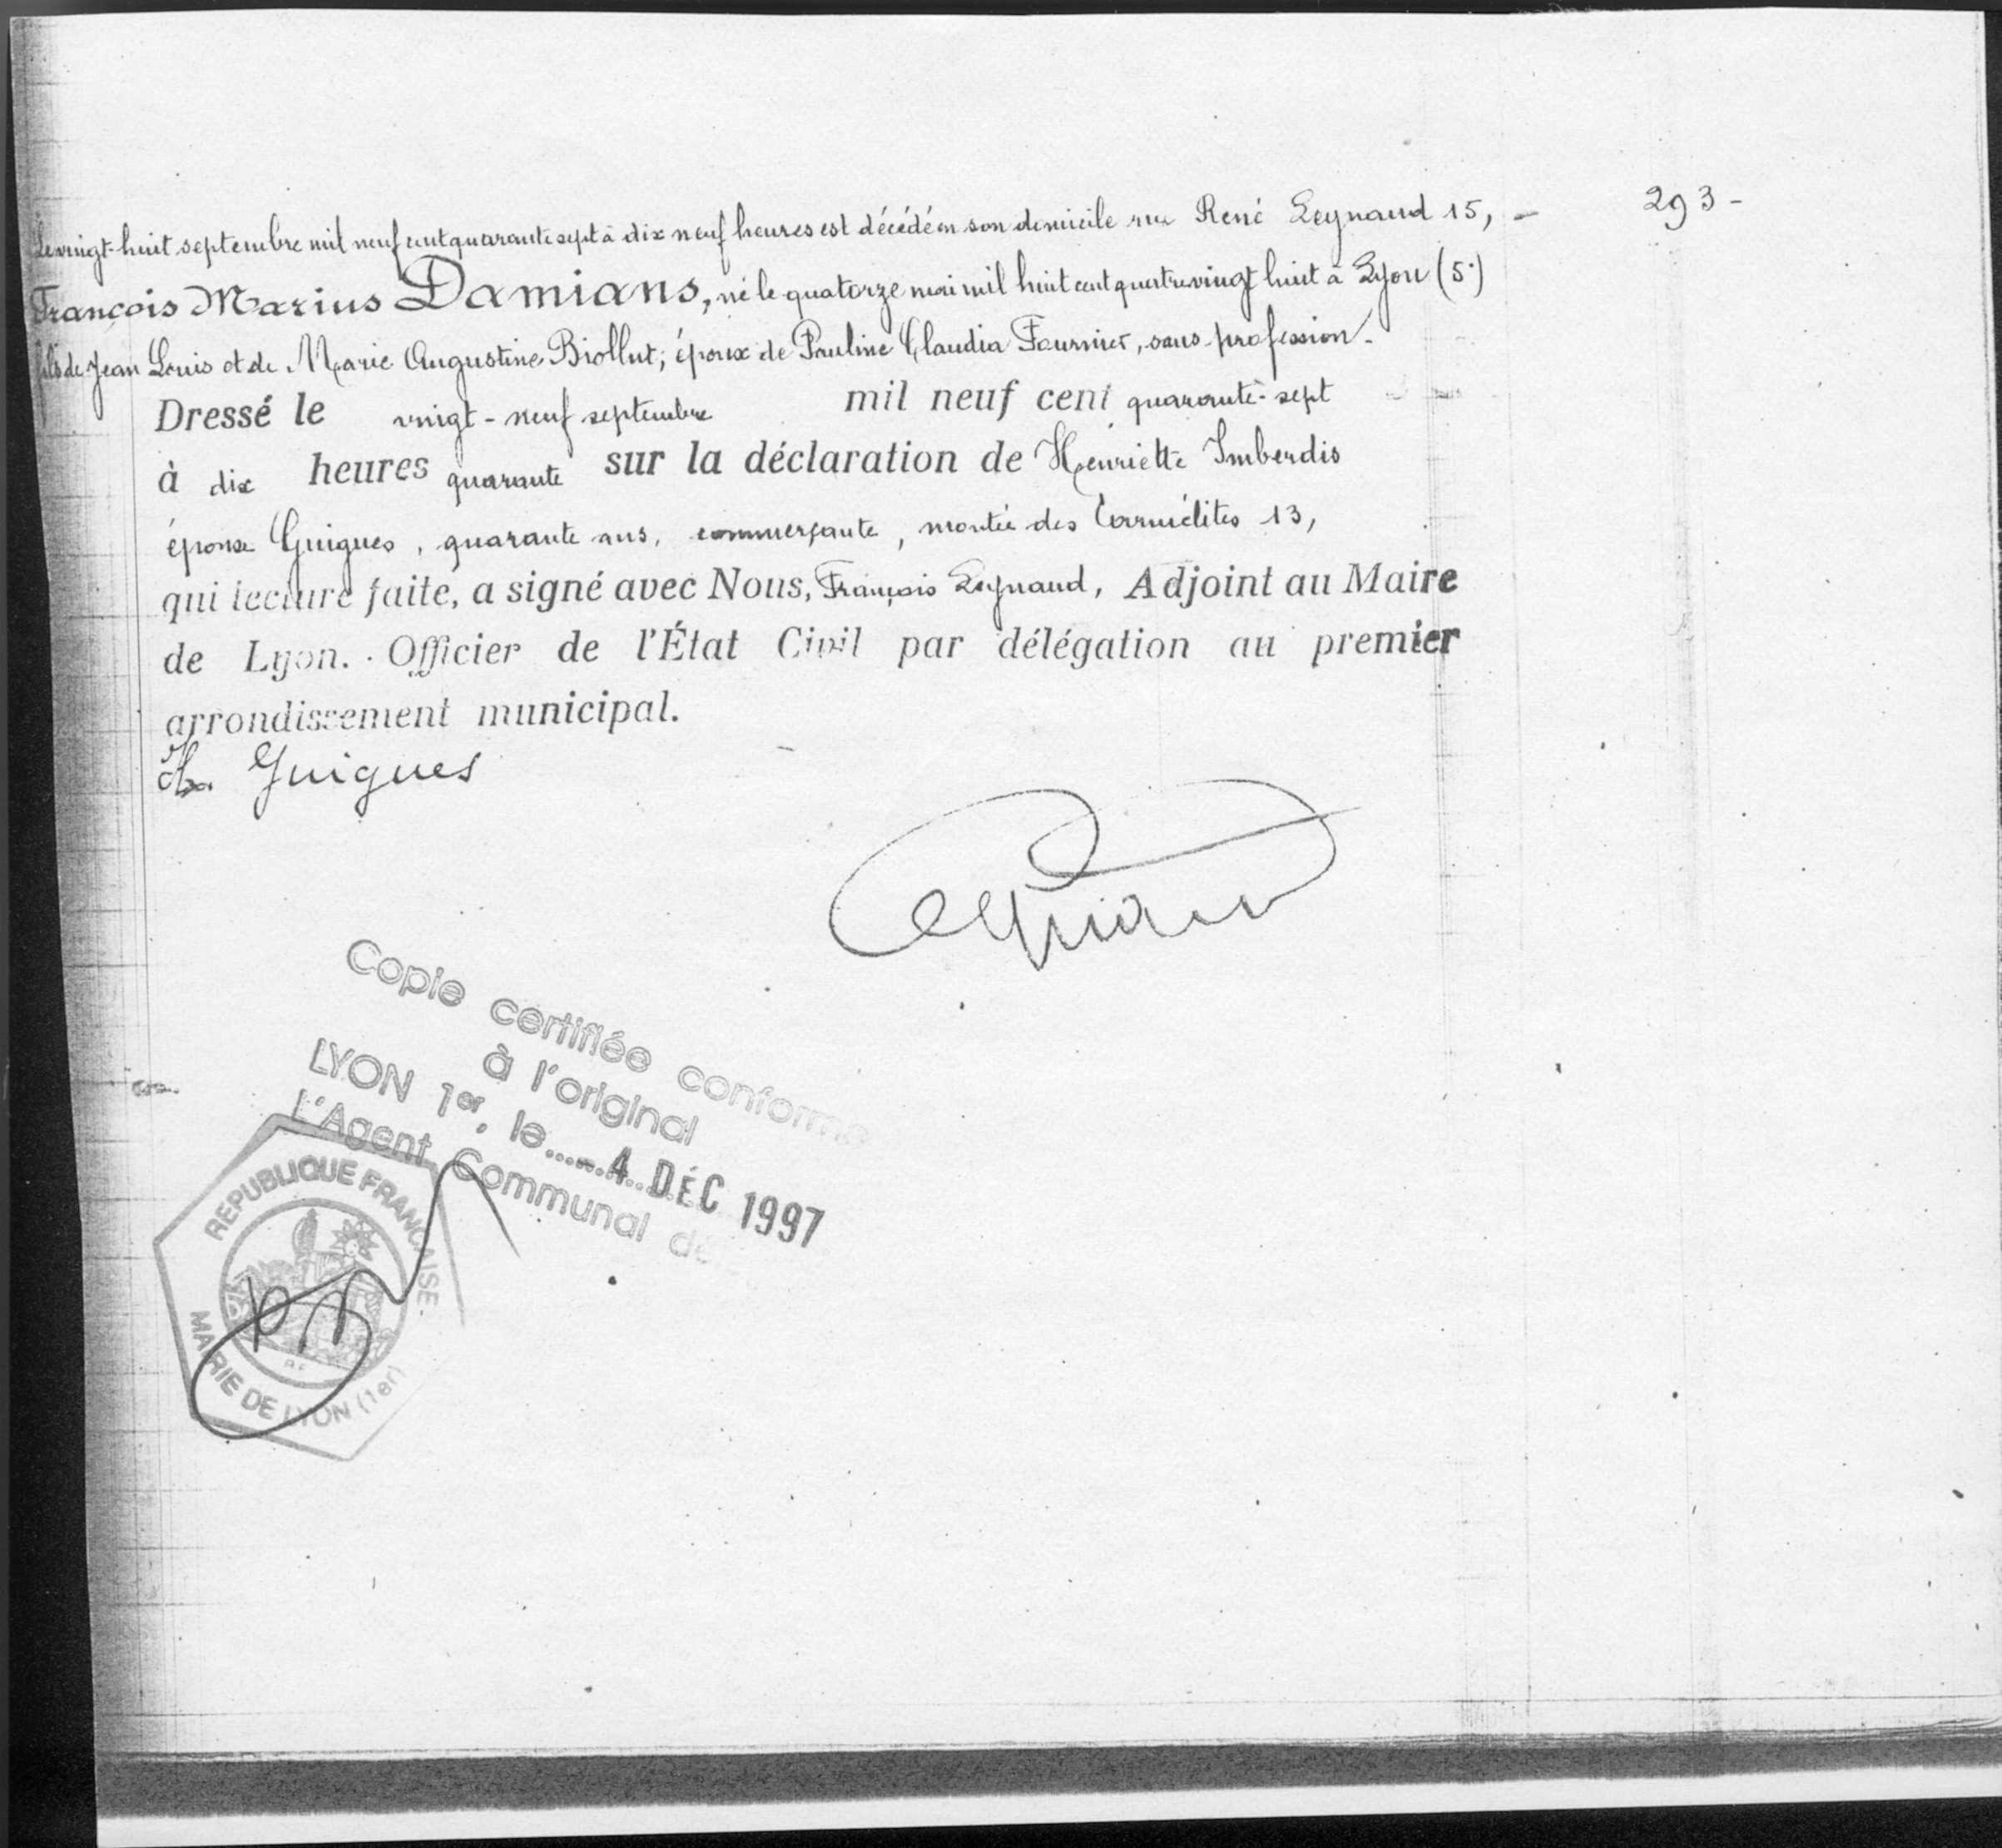 293 -
Le vingt-huit septembre mil neuf cent quarante sept à dix neuf heures est décédé en son domicile rue René Leynaud 15, -
François Marius Damians, né le quatorze mai mil huit cent quatre vingt huit à Lyon (5°)
fils de Jean Louis et de Marie Augustine Biollut, époux de Pauline Claudia Fournier, sans profession.
Dressé le vingt-neuf septembre mil neuf cent quarante-sept
à dix heures quarante sur la déclaration de Henriette Imberdis
épouse Guigues, quarante ans, commerçante, montée des Carmélites 13,
qui lecture faite, a signé avec Nous, François Leynaud, Adjoint au Maire
de Lyon. Officier de l'État Civil par délégation au premier
arrondissement municipal.
Guigues
Copie certifiée conforme
à l'original
LYON 1er, le......- 4 DÉC 1997
L'Agent Communal
REPUBLIQUE FRANCAISE.
MAIRIE DE LYON (1er)